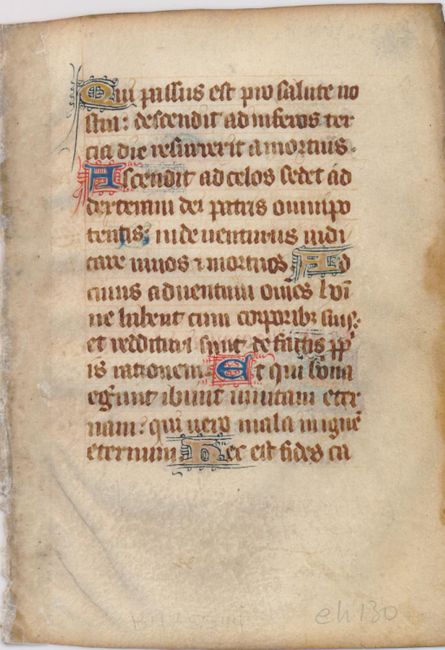 Qui passus est pro salute no
stra: descendit ad inferos ter
cia die resurrexit a mortuis.
Ascendit ad celos sedet ad
dexteram dei patris omnipo
tentis: inde venturus iudi
care vivos ⁊ mortuos Ad
cuius adventum om̅es homi
ne habent cum corporib; suis:
et reddituri sunt de factis pp̄
is rationem Et qui bona
egerunt ibunt in vitam eter
nam: qui vero mala in igne̅
eternum Hec est fides ca
eh 130